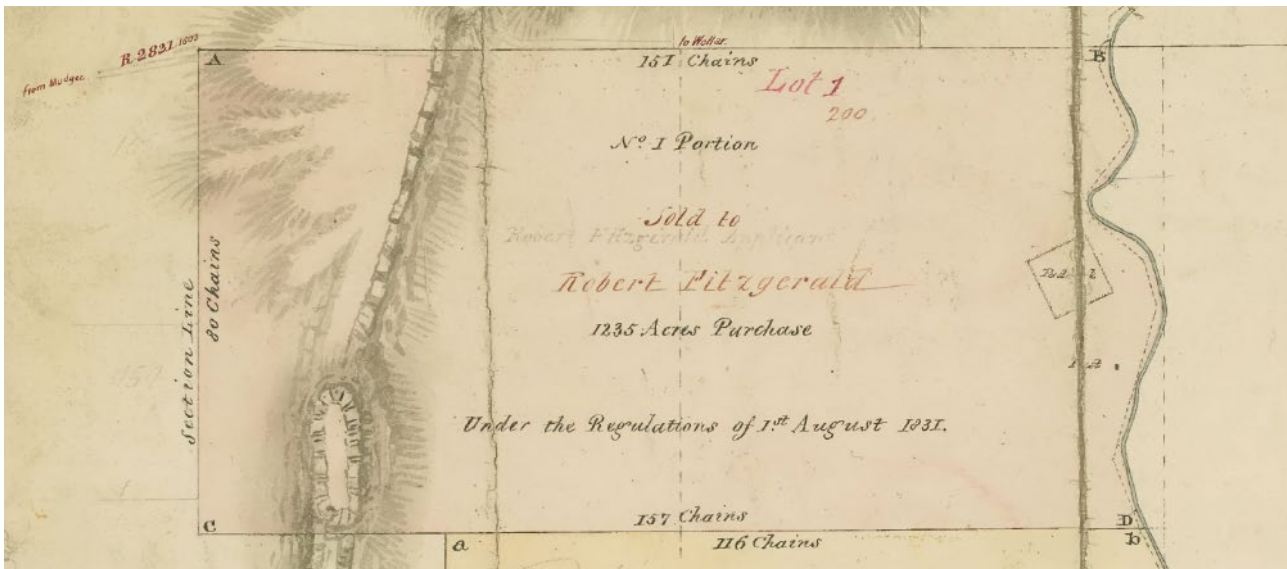 R 2821.1603
from Mudgee
to Wollar.
A
151 Chains
B
Lot 1
200
No. 1 Portion
Sold to
Robert Fitzgerald Applicant
Robert Fitzgerald
1235 Acres Purchase
Under the Regulations of 1st. August 1831.
80 Chains
Section Line
C
157 Chains
D
a
116 Chains
b